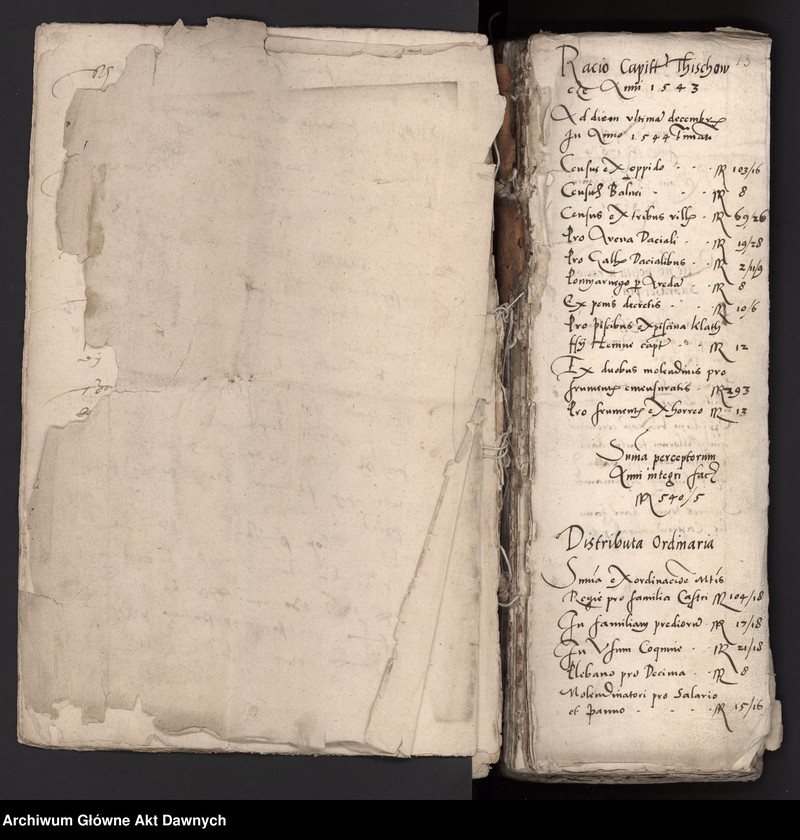 13
Racio Capitt Thischow
Anni 1543
Ad diem ultima decembr
In Anno 1544
Census ex oppido - - - mR 103/16
Census Balnei - - - mR 8
Census ex tribus villis - mR 69/26
Pro Avena Daciali - - mR 19/28
Pro Gall Dacialibus - mR 2/11/9
mR 8
Ex penis decretis - - - mR 10/6
Pro piscibus ex piscina
hieme capt - - mR 12
Ex duobus molendinis pro
frumentis emensuratis - mR 293
Pro frumentis ex horreo mR 13
Suma perceptorum
Anni integri fact
mR 540/5
Distributa Ordinaria
Suma ex ordinacione Mtis
Regie pro familia Castri mR 104/18
In familiam prediorum - mR 17/18
In Usum Coquine - - mR 21/18
Plebano pro Decima - - mR 8
Molendinatori pro Salario
et panno - - - - mR 15/16
Archiwum Główne Akt Dawnych